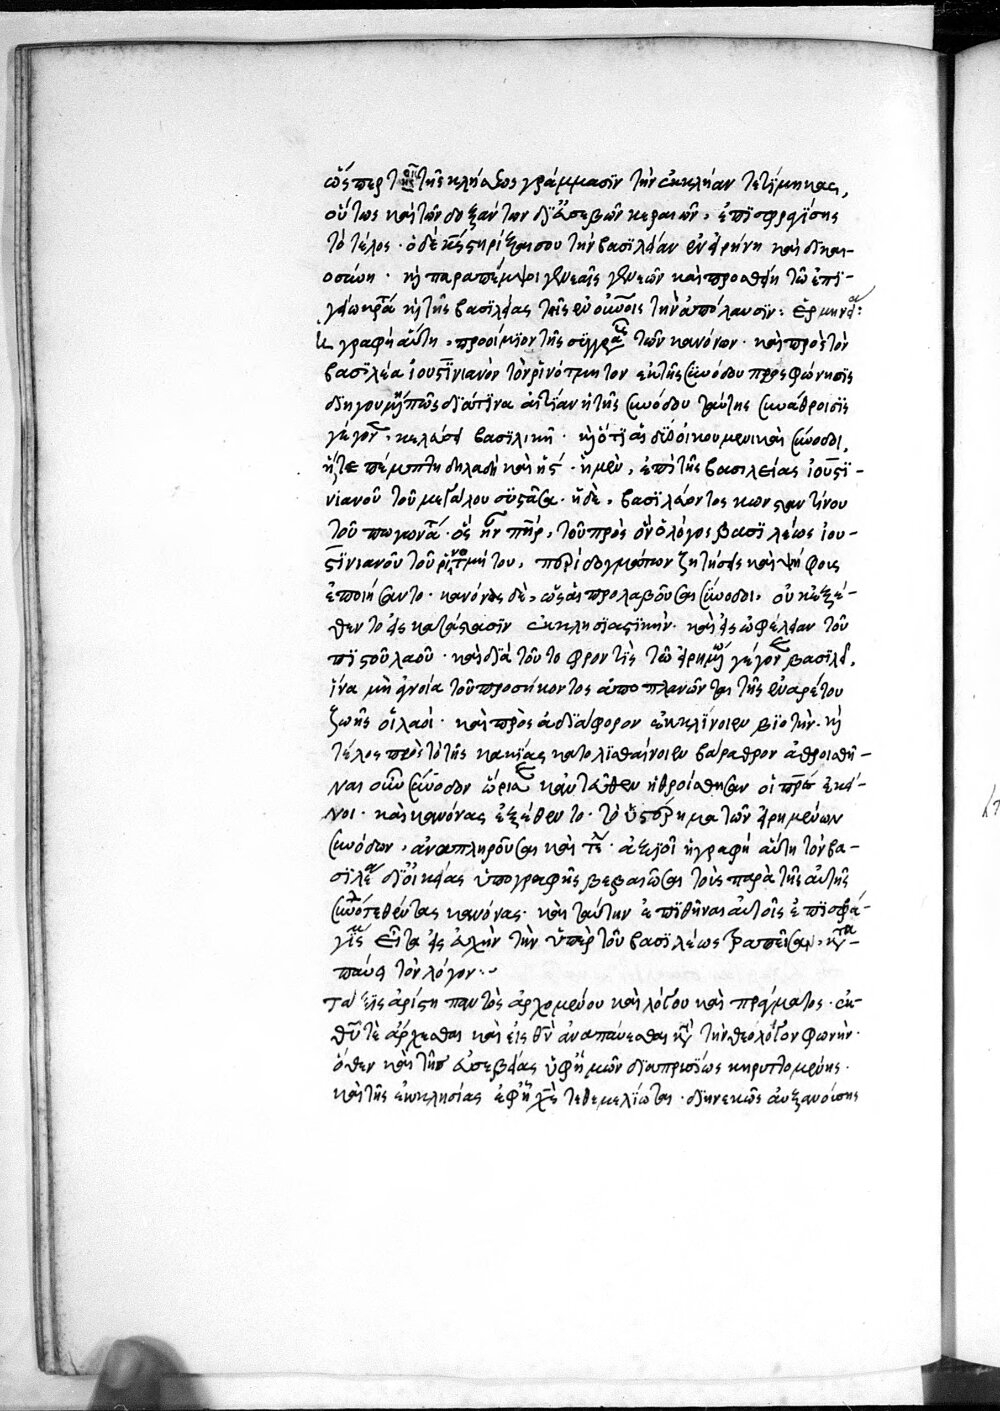 ὥσπερ τοῖς τῆς κλήσεως γράμμασιν τὴν ἐκκλησίαν τετίμηκας,
οὕτως καὶ τῶν δοξάντων δι' εὐσεβῶν κεραιῶν, ἐπισφραγίσῃς
τὸ τέλος· ὁ δὲ κς στηρίξαι σου τὴν βασιλείαν ἐν εἰρήνῃ καὶ δικαι-
οσύνῃ· κὴ παραπέμψοι γενεαῖς γενεῶν καὶ προσθείη τῶ ἐπι-
γείω κράτει κὴ τῆς βασιλείας τῆς ἐν οὐνοῖς τὴν ἀπόλαυσιν: Ἑρμηνεία:
Η γραφὴ αὕτη, προοίμιον τῆς συγγραφῆς τῶν κανόνων· καὶ πρὸς τὸν
βασιλέα ἰουστινιανὸν τὸν ῥινότμητον ἐκ τῆς συνόδου προσφώνησις
διηγουμένη πῶς διὰ τίνα αἰτίαν ἡ τῆς συνόδου ταύτης συνάθροισις
γέγονεν, κελεύσει βασιλικῆ· κὴ ὅτι αἱ δύο οἰκουμενικαὶ σύνοδοι,
ἥτε πέμπτη δηλαδὴ καὶ ἡ ς· ἡ μὲν, ἐπὶ τῆς βασιλείας ἰουστι-
νιανοῦ τοῦ μεγάλου συστᾶσα· ἡ δὲ, βασιλεύοντος κωνσταντίνου
τοῦ πωγωνάτου· ὃς ἦν πηρ, τοῦ πρὸς ὃν ὁ λόγος βασιλέως ἰου-
στινιανοῦ τοῦ ῥινοτμήτου, περὶ δογμάτων ζητήσεις καὶ ψήφους
ἐποιήσαντο· κανόνας δὲ, ὡς αἱ προλαβοῦσαι σύνοδοι, οὐκ ἐξέ-
θεντο εἰς κατάστασιν ἐκκλησιαστικήν· καὶ εἰς ὠφέλειαν τοῦ
πιστοῦ λαοῦ· καὶ διὰ τοῦτο φροντὶς τῶ εἰρημένω γέγονε βασιλεῖ,
ἵνα μὴ ἀγνοία τοῦ προσήκοντος ἀποπλανῶνται τῆς ἐναρέτου
ζωῆς οἱ λαοὶ· καὶ πρὸς ἀδιάφορον ἐκκλίνοιεν βιοτήν· κὴ
τέλος πρὸς τὸ τῆς κακίας κατολισθαίνοιεν βάραθρον ἀθροισθῆ-
ναι οὖν σύνοδον ὥρισε καντεῦθεν ἠθροίσθησαν οἱ πρες ἐκεῖ-
νοι· καὶ κανόνας ἐξέθεντο· τὸ ὑστέρημα τῶν εἰρημένων
συνόδων, ἀναπληροῦσαι καὶ τε· ἀξιοῖ ἡ γραφὴ αὕτη τὸν βα-
σιλέα δι' οἰκείας ὑπογραφῆς βεβαιῶσαι τοὺς παρὰ τῆς αὐτῆς
συνόδου τεθέντας κανόνας· καὶ ταύτην ἐπιθῆναι αὐτοῖς ἐπισφρά-
γισιν Εἶτα εἰς εὐχὴν τὴν ὑπὲρ τοῦ βασιλέως τραπεῖσαν, κατα-
παύει τὸν λόγον:~
Τάξις ἀρίστη παντὸς ἀρχομένου καὶ λόγου καὶ πράγματος· ἐκ
θῦ τὲ ἄρχεσθαι καὶ εἰς θν ἀναπαύεσθαι κατὰ τὴν θεολόγον φωνήν·
ὅθεν καὶ τῆς εὐσεβείας ὑφ' ἡμῶν διαπρυσίως κηρυττομένης·
καὶ τῆς ἐκκλησίας ἐφ' ἧ χς τεθεμελίωται· διηνεκῶς αὐξανούσης